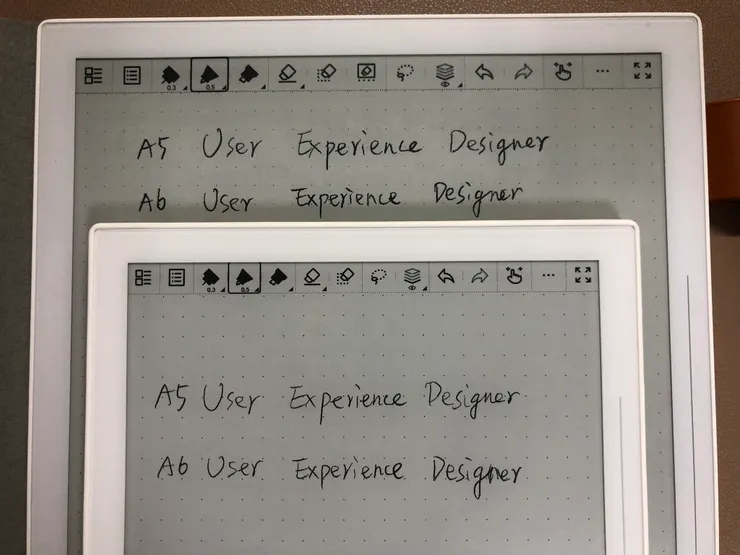 0.3 0.5
A5 User Experience Designer
A6 User Experience Designer
0.3 0.5
A5 User Experience Designer
A6 User Experience Designer